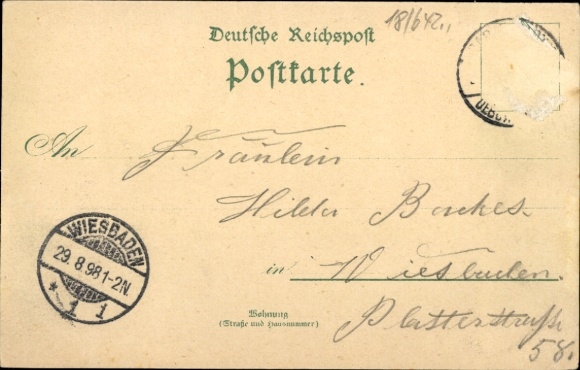 18/642.,
Deutsche Reichspost
Postkarte.
An Fräulein
Hilda Backes.
in Wiesbaden.
Wohnung
(Straße und Hausnummer)
Platterstraße
58.
WIESBADEN
29.8.98 1-2N.
* 1 1